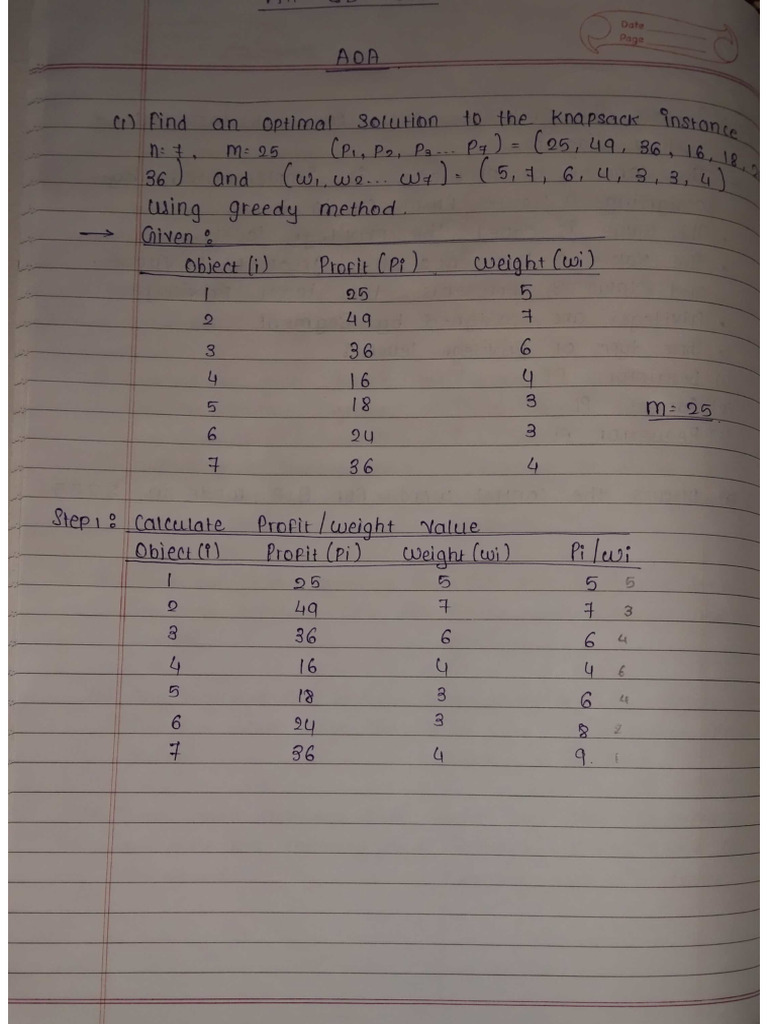 Date
Page
AOA
(1) Find an optimal solution to the knapsack instance
n=7, m=25 (P1, P2, P3... P7) = (25, 49, 36, 16, 18, 2
36) and (w1, w2... w7) = (5, 7, 6, 4, 3, 3, 4)
using greedy method.
→ Given :
Object (i) Profit (Pi) weight (wi)
1 25 5
2 49 7
3 36 6
4 16 4
5 18 3 m= 25
6 24 3
7 36 4
Step 1 : Calculate Profit/weight value
Object (i) Profit (Pi) weight (wi) Pi/wi
1 25 5 5 5
2 49 7 7 3
3 36 6 6 4
4 16 4 4 6
5 18 3 6 4
6 24 3 8 2
7 36 4 9. 1